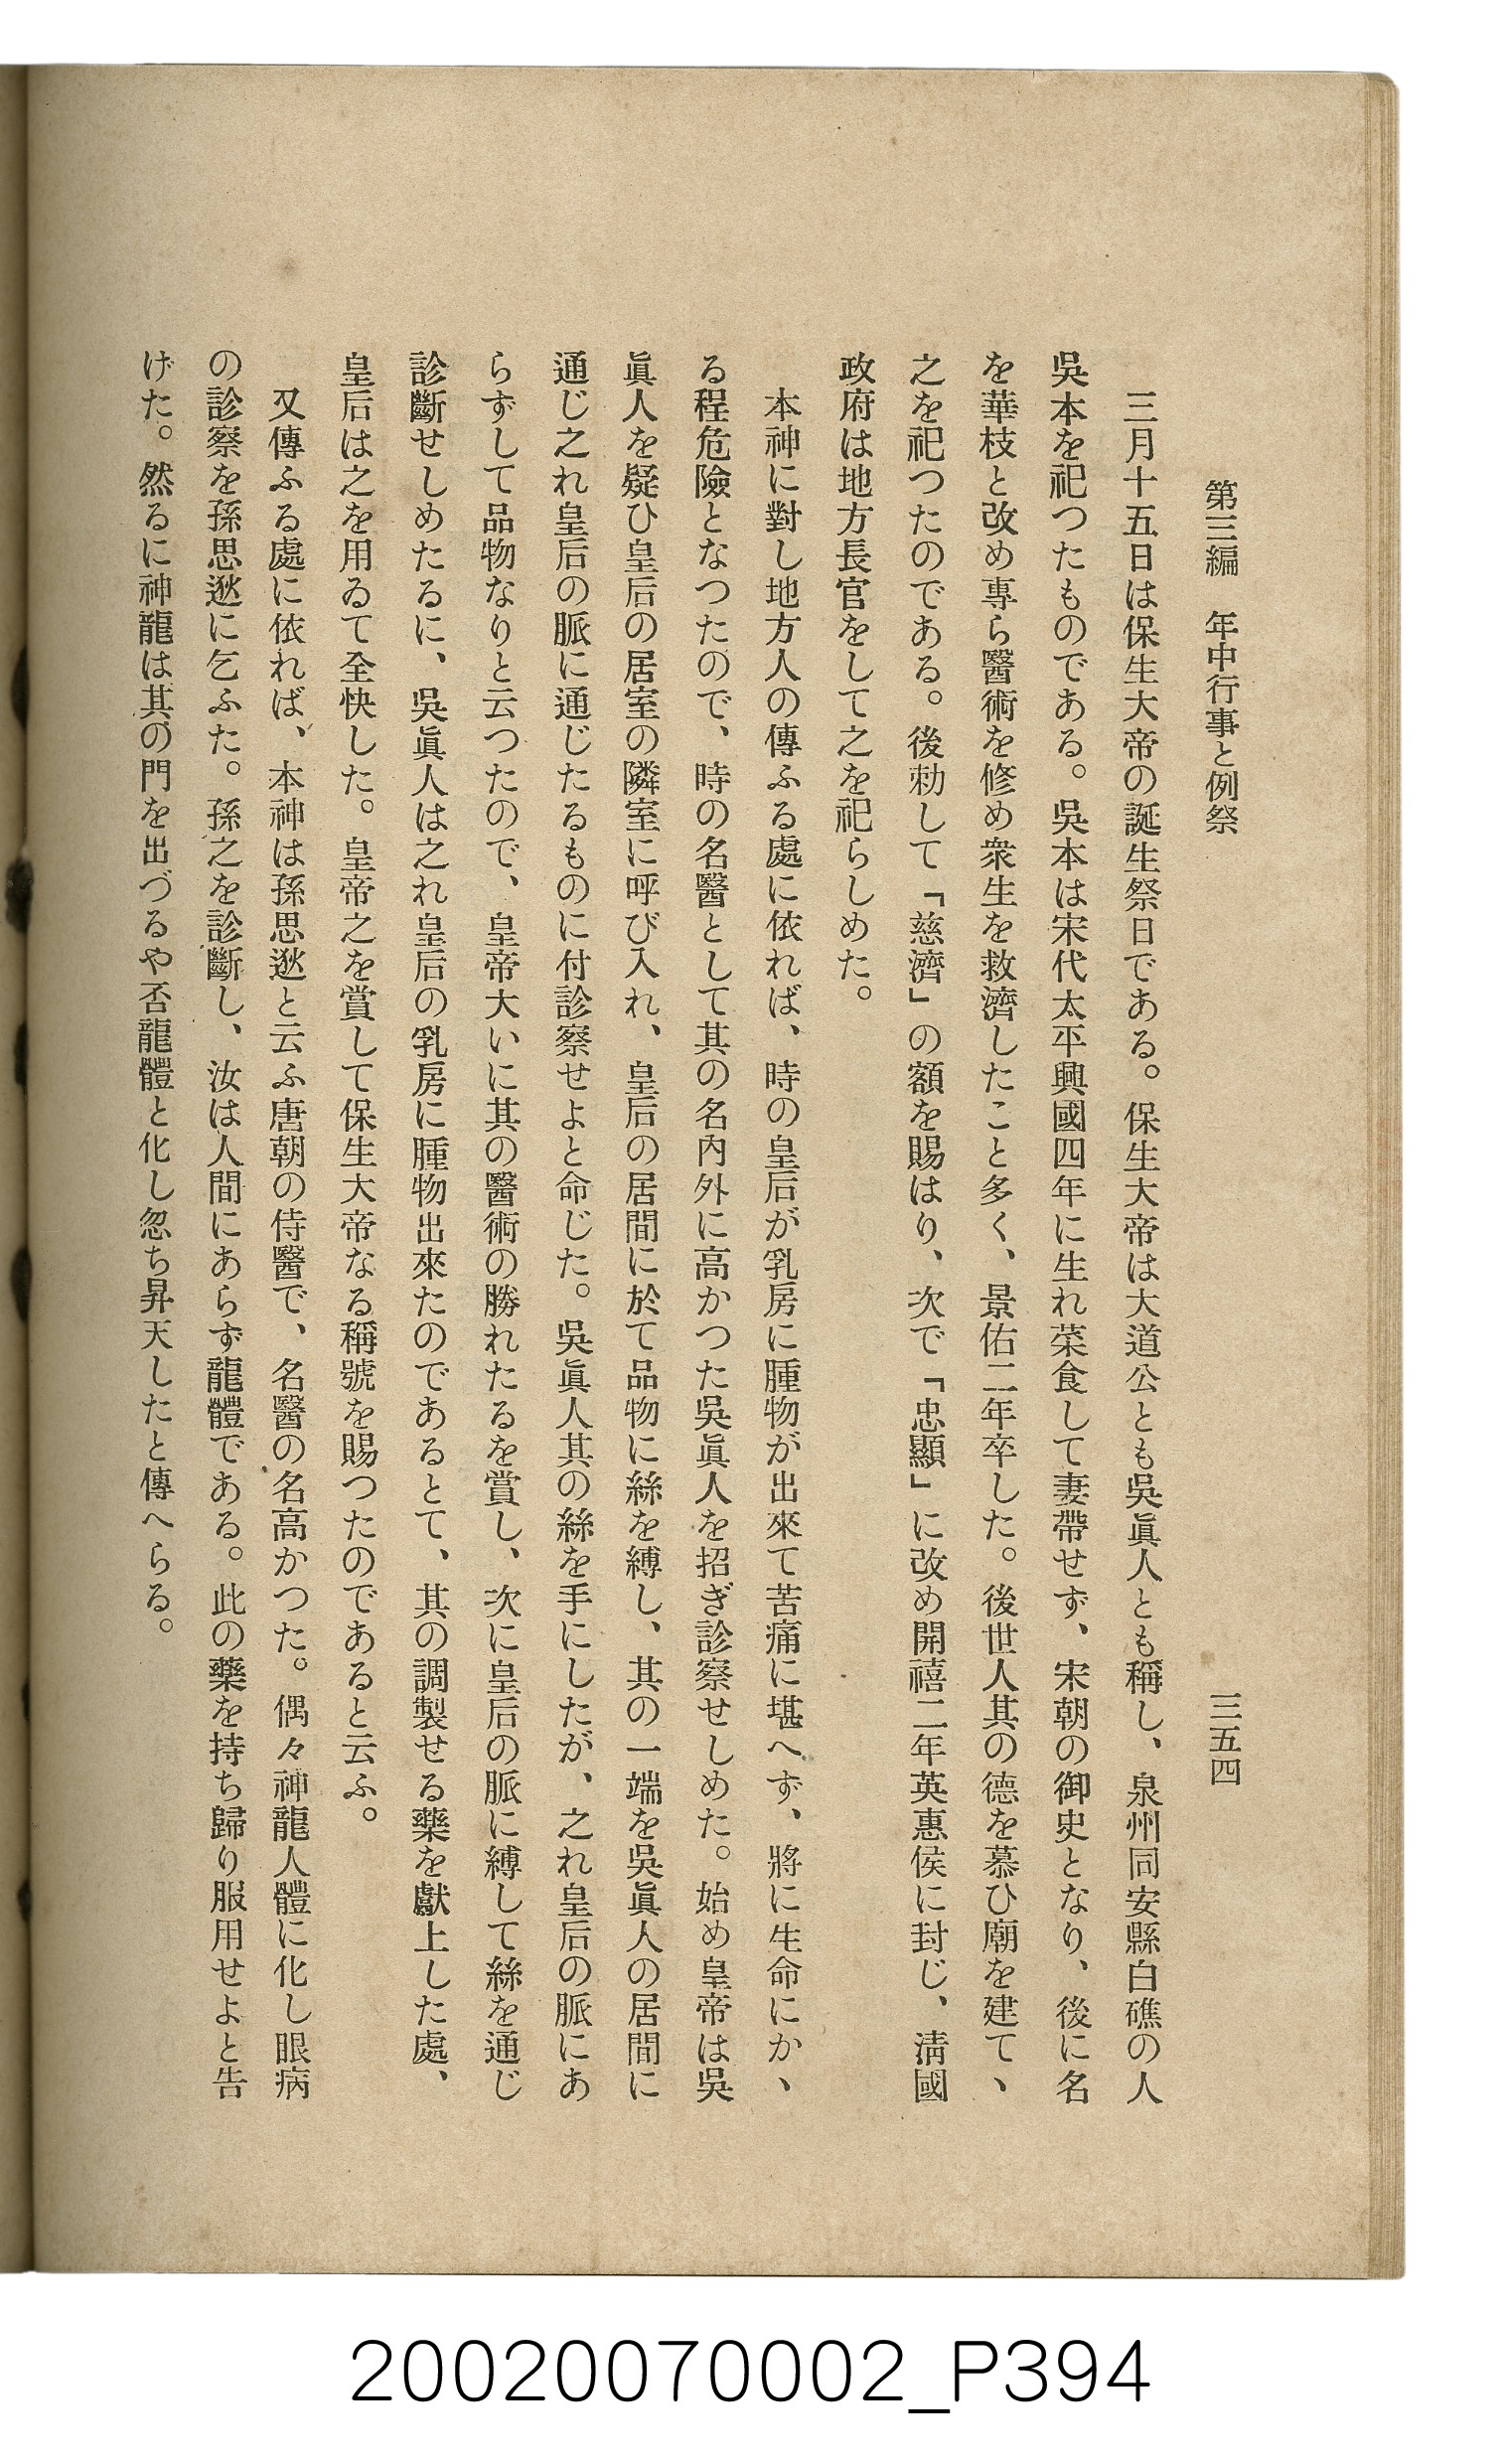 第三編　年中行事と例祭　三五四
三月十五日は保生大帝の誕生祭日である。保生大帝は大道公とも吳眞人とも稱し、泉州同安縣白礁の人
吳本を祀つたものである。吳本は宋代太平興國四年に生れ菜食して妻帶せず、宋朝の御史となり、後に名
を華枝と改め專ら醫術を修め衆生を救濟したこと多く、景佑二年卒した。後世人其の德を慕ひ廟を建て、
之を祀つたのである。後勅して「慈濟」の額を賜はり、次で「忠顯」に改め開禧二年英惠侯に封じ、淸國
政府は地方長官をして之を祀らしめた。
本神に對し地方人の傳ふる處に依れば、時の皇后が乳房に腫物が出來て苦痛に堪へず、將に生命にかゝ
る程危險となつたので、時の名醫として其の名內外に高かつた吳眞人を招ぎ診察せしめた。始め皇帝は吳
眞人を疑ひ皇后の居室の隣室に呼び入れ、皇后の居間に於て品物に絲を縛し、其の一端を吳眞人の居間に
通じ之れ皇后の脈に通じたるものに付診察せよと命じた。吳眞人其の絲を手にしたが、之れ皇后の脈にあ
らずして品物なりと云つたので、皇帝大いに其の醫術の勝れたるを賞し、次に皇后の脈に縛して絲を通じ
診斷せしめたるに、吳眞人は之れ皇后の乳房に腫物出來たのであるとて、其の調製せる藥を獻上した處、
皇后は之を用ゐて全快した。皇帝之を賞して保生大帝なる稱號を賜つたのであると云ふ。
又傳ふる處に依れば、本神は孫思逖と云ふ唐朝の侍醫で、名醫の名高かつた。偶々神龍人體に化し眼病
の診察を孫思逖に乞ふた。孫之を診斷し、汝は人間にあらず龍體である。此の藥を持ち歸り服用せよと告
げた。然るに神龍は其の門を出づるや否龍體と化し忽ち昇天したと傳へらる。
20020070002_P394